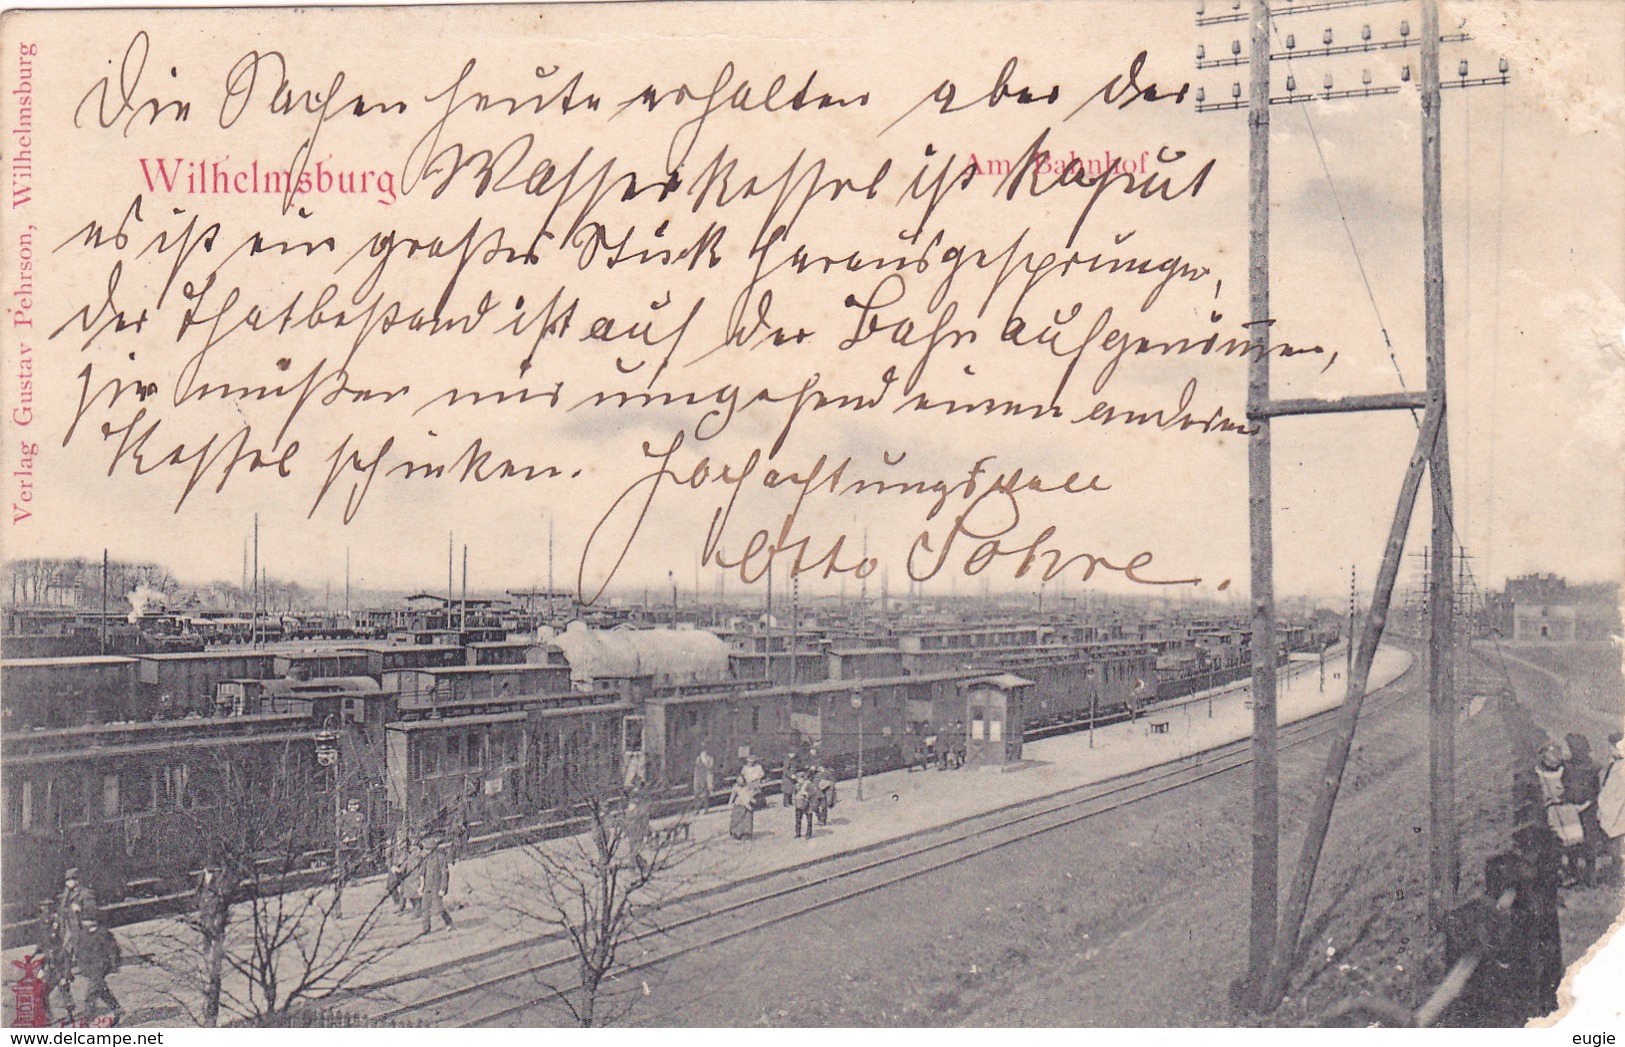 Die Sachen heute erhalten aber der
Wilhelmsburg
Am Bahnhof
Wasserkessel ist kaput
es ist ein großes Stück herausgesprungen,
der Thatbestand ist auf der Bahn aufgenom̅en,
sie müßen mir umgehend einen anderen
Kessel schicken. Hochachtungsvoll
Otto Sohre.
Verlag Gustav Pehrson, Wilhelmsburg
eugie